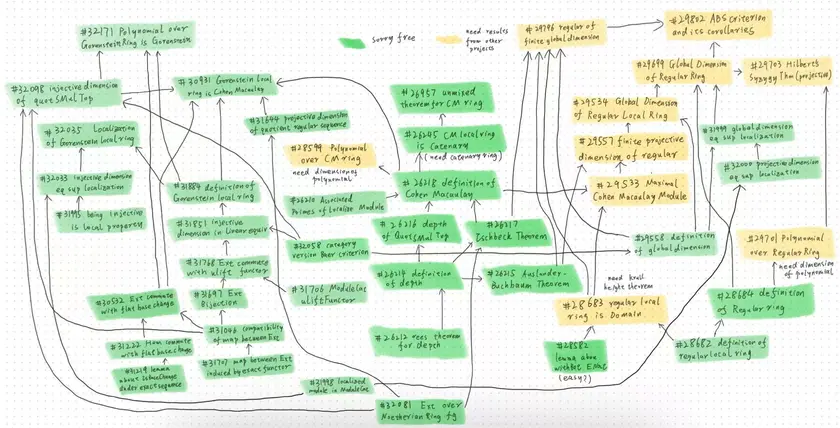 #32171 Polynomial over
Gorenstein Ring is Gorenstein
sorry free
need results
from other
projects
#29796 regular of
finite global dimension
#29802 ABS criterion
and its corollaries
#32098 injective dimension
of quotSMulTop
#30931 Gorenstein local
ring is Cohen Macaulay
#26957 unmixed
theorem for CM ring
#29699 Global Dimension
of Regular Ring
#29703 Hilbert's
Syzygy Thm (projective)
#31644 projective dimension
of quotient regular sequence
#29534 Global Dimension
of Regular Local Ring
#32035 Localization
of Gorenstein local ring
#26245 CM local ring is
Catenary
(need catenary ring)
#31999 global dimension
eq sup localization
#28599 Polynomial
over CM ring
need dimension of
polynomial
#29557 finite projective
dimension of regular
#32033 injective dimension
eq sup localization
#31884 definition of
Gorenstein local ring
#26218 definition of
Cohen Macaulay
#32000 projective dimension
eq sup localization
#29533 Maximal
Cohen Macaulay Module
#26210 Associated
Primes of Localize Module
#31995 being Injective
is local property
#31851 injective
dimension in linear equiv
#26216 depth
of QuotSMulTop
#26317
Ischbeck Theorem
#32058 category
version Baer criterion
#29558 definition
of global dimension
#29701 Polynomial
over Regular Ring
need dimension
of polynomial
#31768 Ext commute
with ulift functor
#26214 definition
of depth
#26215 Auslander-
Buchbaum Theorem
need krull
height theorem
#31697 Ext
Bijection
#31706 ModuleCat
uliftFunctor
#30532 Ext commute
with flat base change
#28683 regular local
ring is Domain
#28684 definition
of Regular ring
#31046 compatibility of
map between Ext
#31222 Hom commute
with flat base change
#26212 rees theorem
for depth
#28582
lemma above
(easy?)
#28682 definition of
regular local ring
#31707 map between Ext
induced by exact functor
#31219 lemma
about IsBaseChange
under exact sequence
#31998 localized
module in ModuleCat
#32081 Ext over
Noetherian Ring fg